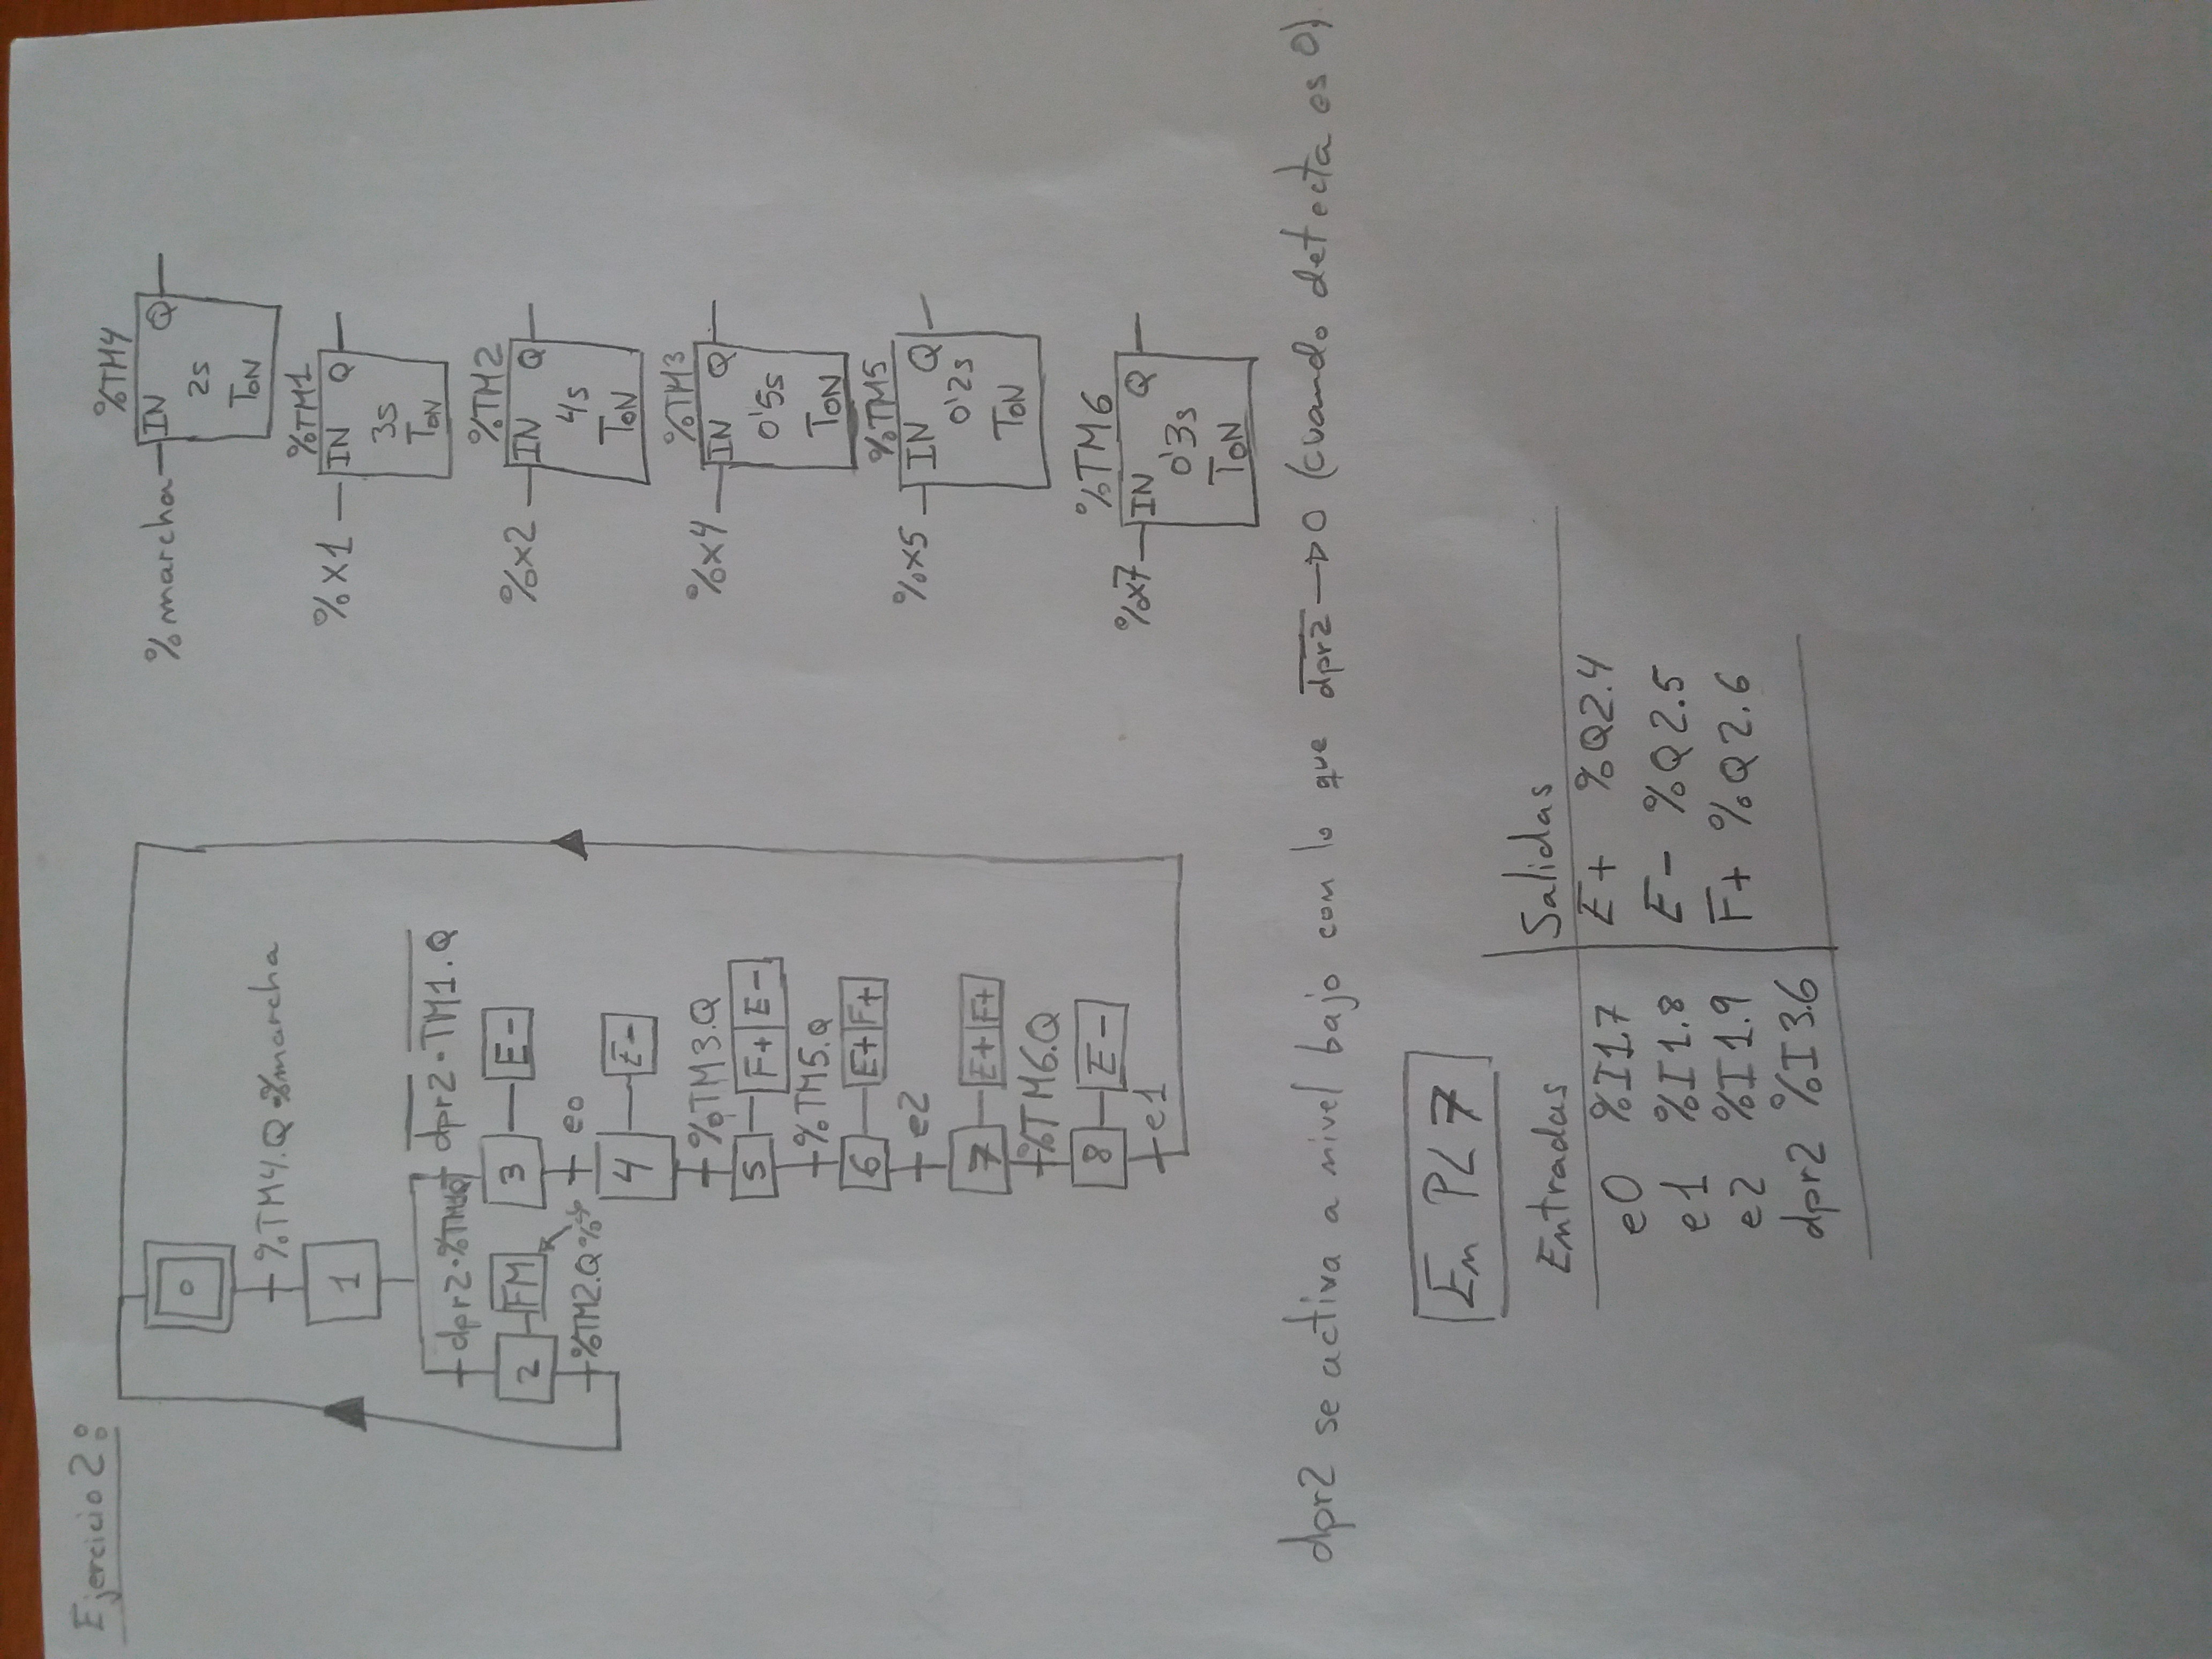 Ejercicio 2:
0
%TM4.Q·%marcha
1
dpr2·%TM1Q
dpr2·TM1.Q
2 FM
3 E-
%TM2.Q
e0
4 E-
%TM3.Q
5 F+ E-
%TM5.Q
6 E+ F+
e2
7 E+ F+
%TM6.Q
8 E-
e1
%TM4
%marcha IN Q
2s
TON
%TM1
%X1 IN Q
3s
TON
%TM2
%x2 IN Q
4s
TON
%TM3
%x4 IN Q
0'5s
TON
%TM5
%x5 IN Q
0'2s
TON
%TM6
%x7 IN Q
0'3s
TON
dpr2 se activa a nivel bajo con lo que dpr2 → 0 (cuando detecta es 0)
En PL7
Entradas Salidas
e0 %I1.7 E+ %Q2.4
e1 %I1.8 E- %Q2.5
e2 %I1.9 F+ %Q2.6
dpr2 %I3.6